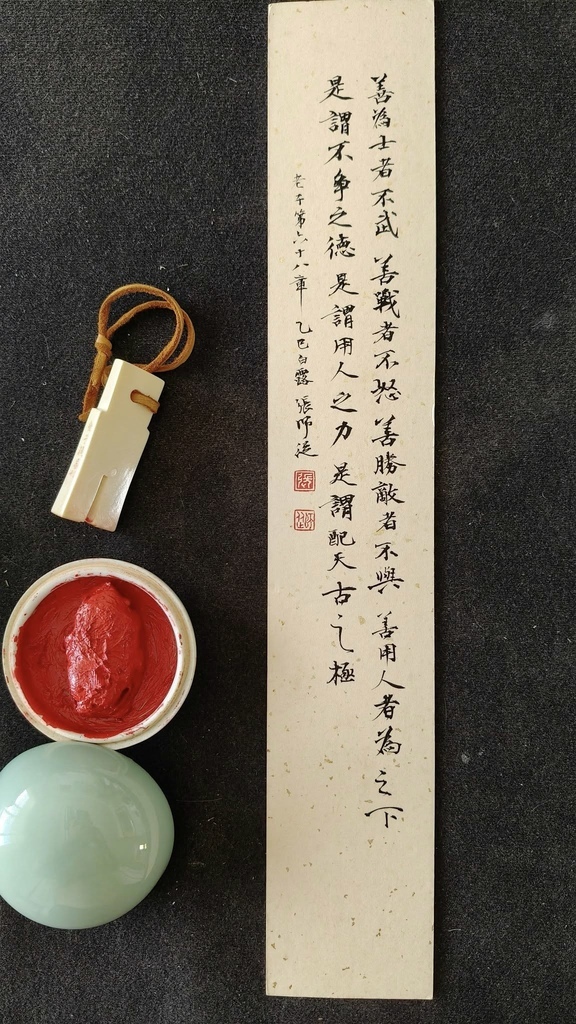 善為士者不武 善戰者不怒 善勝敵者不與 善用人者為之下
是謂不爭之德 是謂用人之力 是謂配天古之極
老子第六十八章 乙巳白露 張師從
張